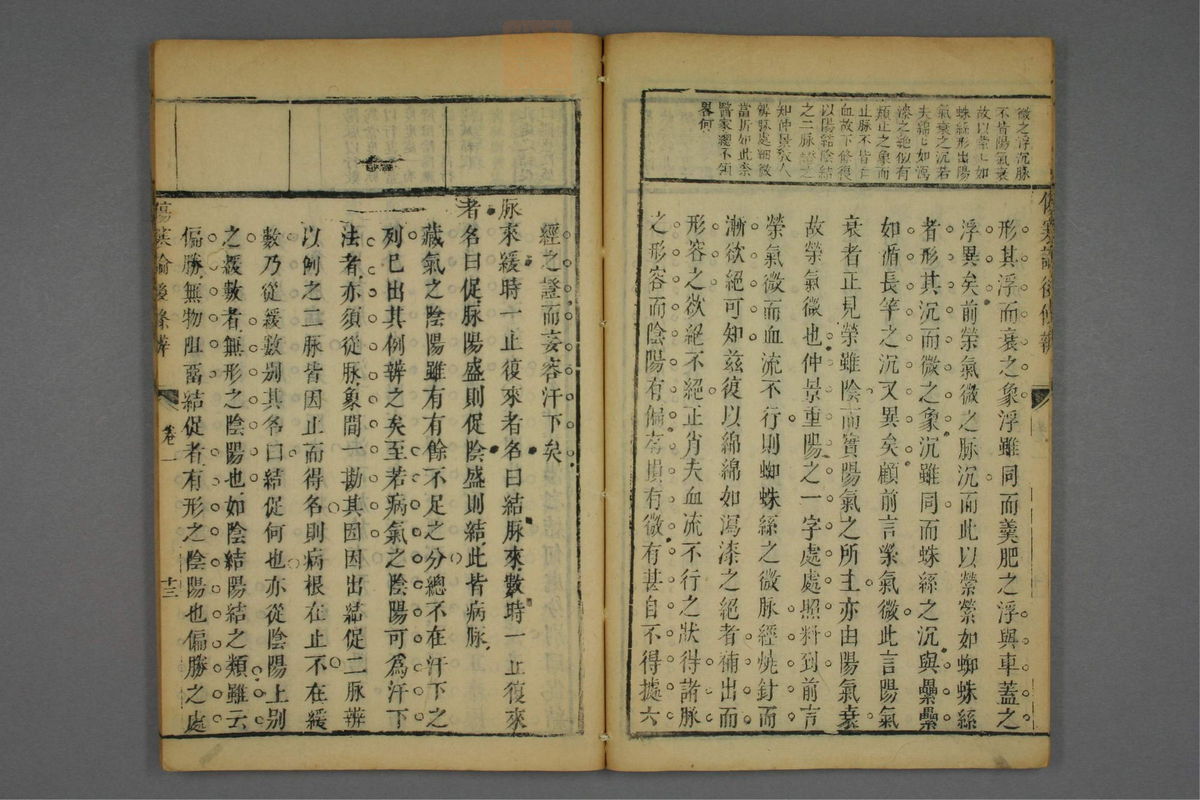 微之浮沉脉
不皆陽氣衰
故以縈縈如
蛛絲形出陽
氣衰之沉若
夫綿綿如瀉
漆之絶似有
類正之象而
止脉不皆
血故下條復
以陽結陰結
之二脉
知仲景教人
辨脉處細微
當折如此柰
醫家總不領
畧何
傷寒論後條辨
形其浮而衰之象浮雖同而羹肥之浮與車蓋之
浮異矣前榮氣微之脉沉而此以縈縈如蜘蛛絲
者形其沉而微之象沉雖同而蛛絲之沉與纍纍
如循長竿之沉又異矣顧前言榮氣微此言陽氣
衰者正見榮雖陰而實陽氣之所主亦由陽氣衰
故榮氣微也仲景重陽之一字處處照料到前言
榮氣微而血流不行則蜘蛛絲之微脉經燒針而
漸欲絕可知茲復以綿綿如瀉漆之絕者補出而
形容之欲絕不絕正肖夫血流不行之狀得諸脉
之形容而陰陽有偏有損有微有甚自不得據六
經之證而妄容汗下矣
脉來緩時一止復來者名曰結脉來數時一止復來
者名曰促脉陽盛則促陰盛則結此皆病脉
藏氣之陰陽雖有有餘不足之分總不在汗下之
列已出其例辨之矣至若病氣之陰陽可爲汗下
法者亦須從脉象間一勘其因因出結促二脉辨
以例之二脉皆因止而得名則病根在止不在緩
數乃從緩數别其名曰結促何也亦從陰陽上别
之緩數者無形之陰陽也如陰結陽結之類雖云
偏勝無物阻畱結促者有形之陰陽也偏勝之處
傷寒論後條辨
卷一
十三